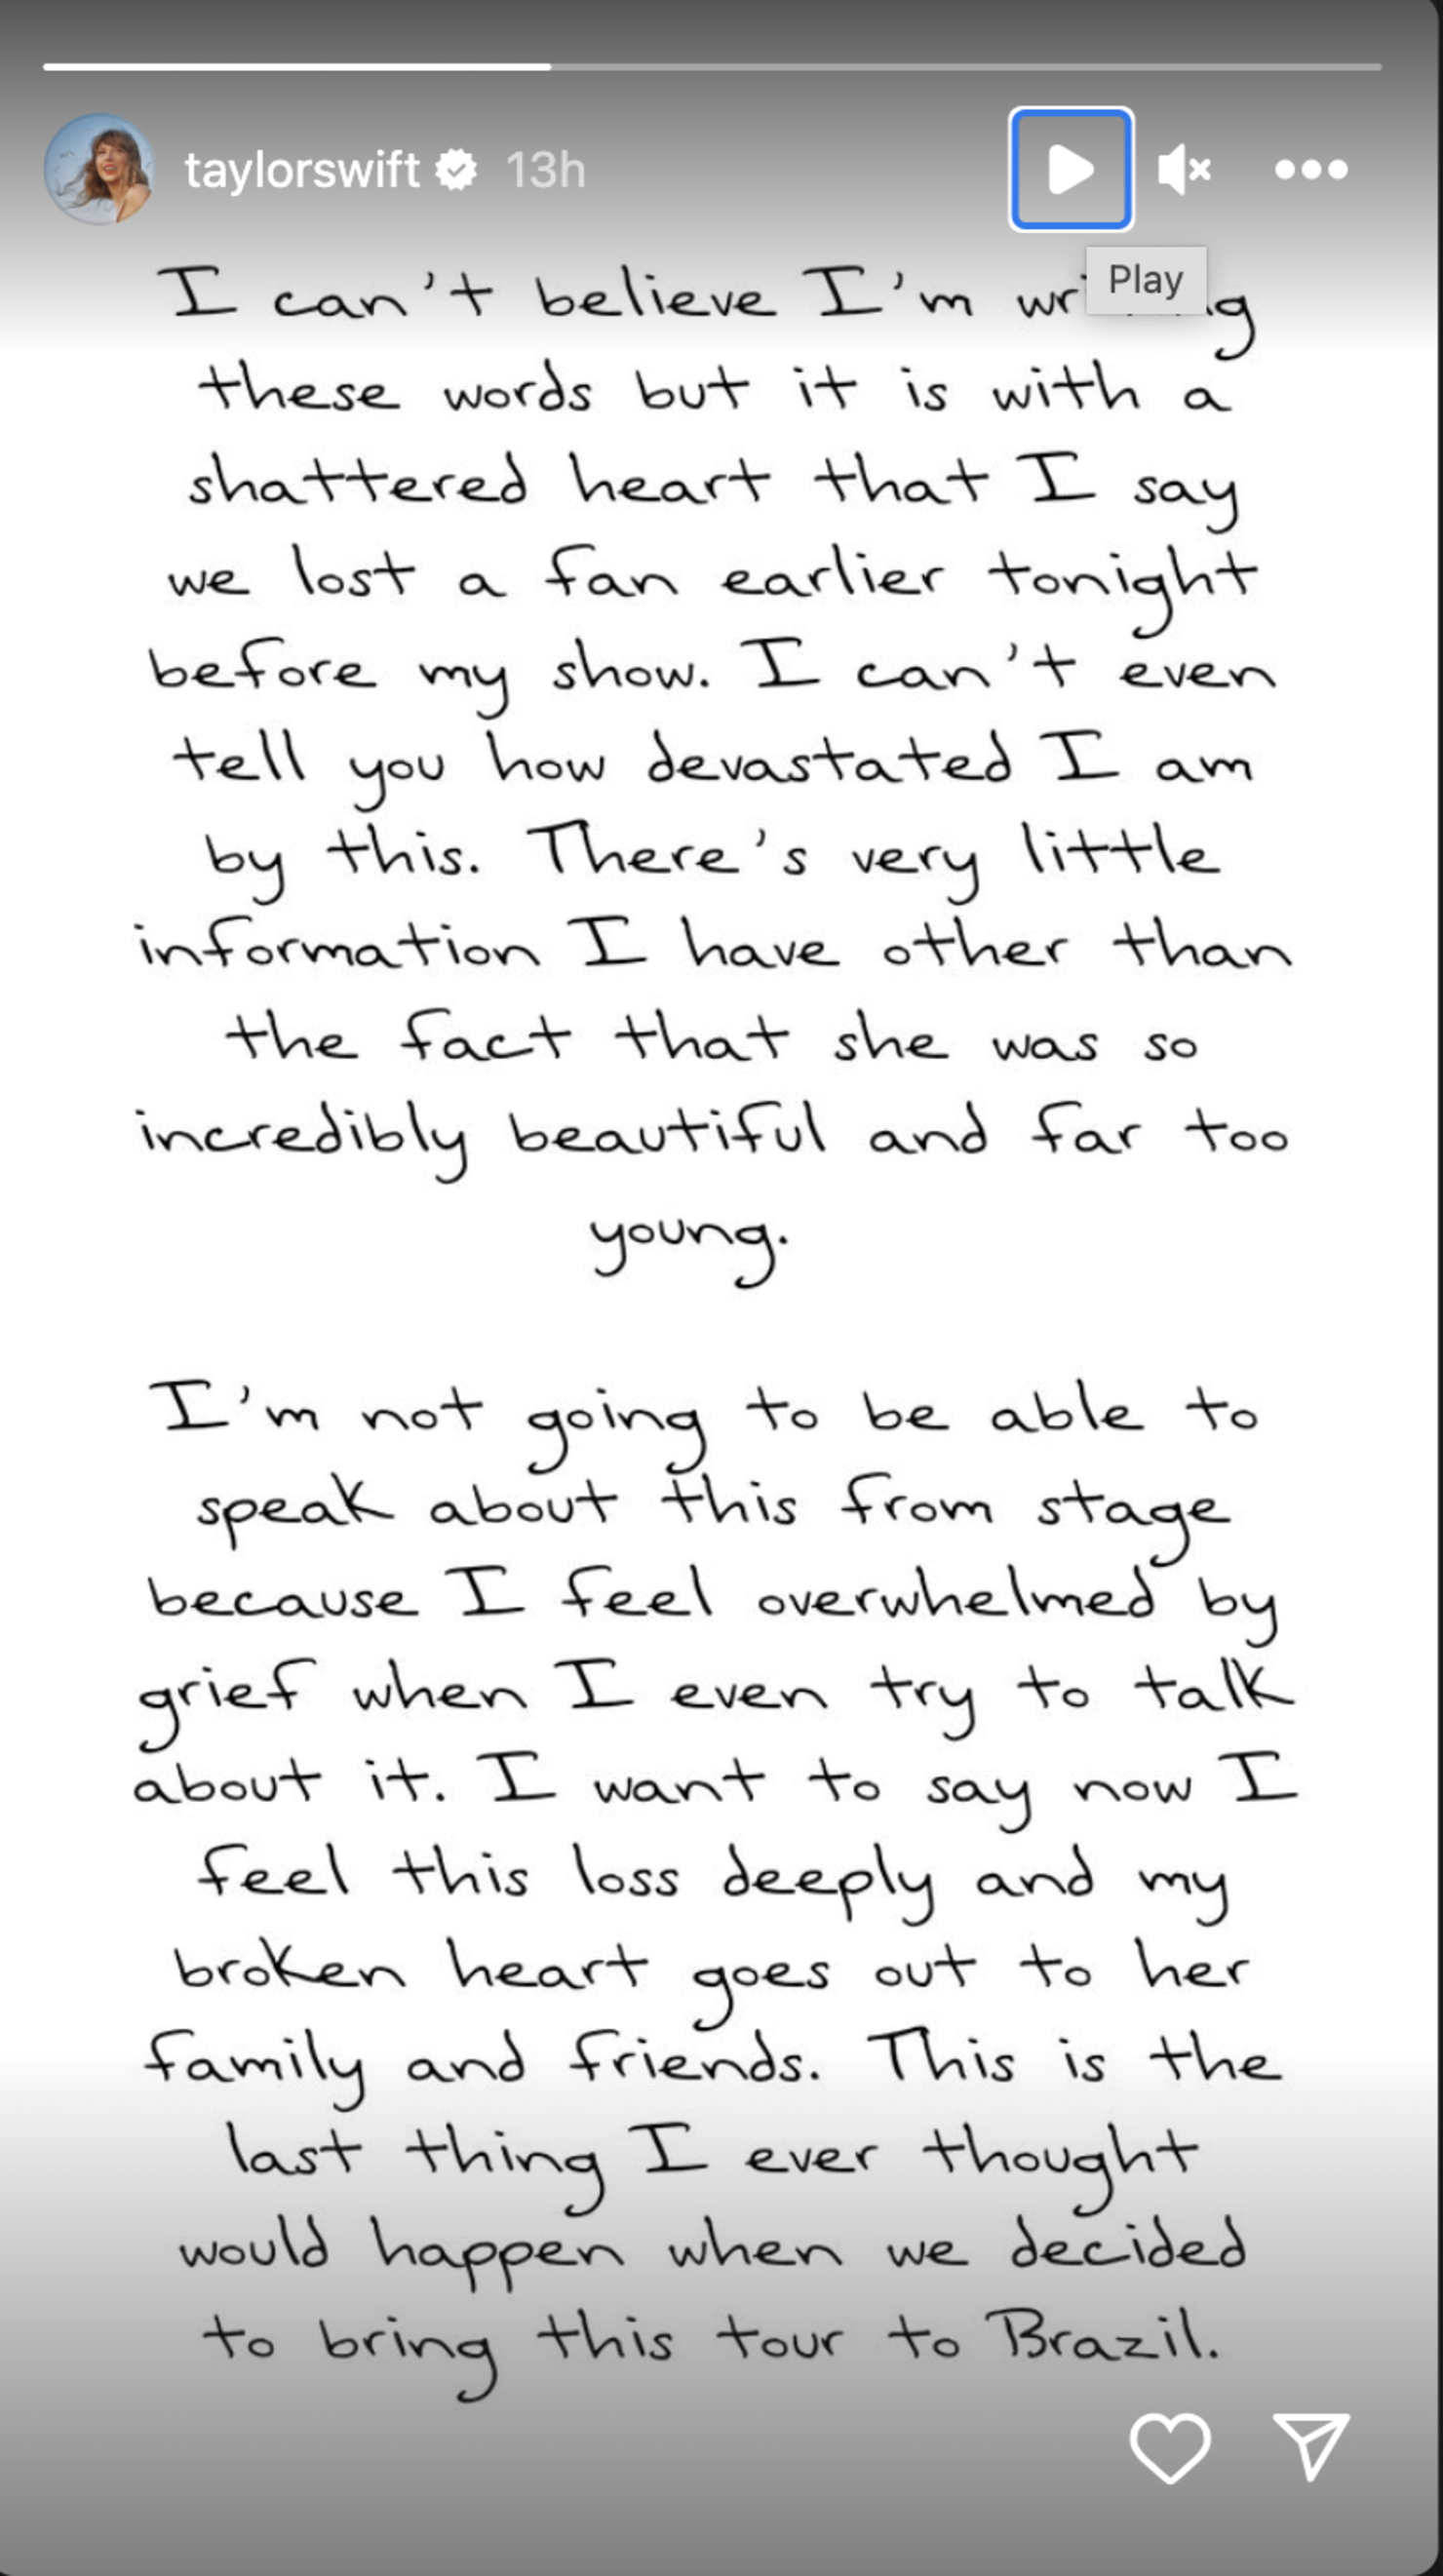 taylorswift 13h
Play
I can't believe I'm
these words but it is with a
shattered heart that I say
we lost a fan earlier tonight
before my show. I can't even
tell you how devastated I am
by this. There's very little
information I have other than
the fact that she was so
incredibly beautiful and far too
young.
I'm not going to be able to
speak about this from stage
because I feel overwhelmed by
grief when I even try to talk
about it. I want to say now I
feel this loss deeply and my
broken heart goes out to her
family and friends. This is the
last thing I ever thought
would happen when we decided
to bring this tour to Brazil.